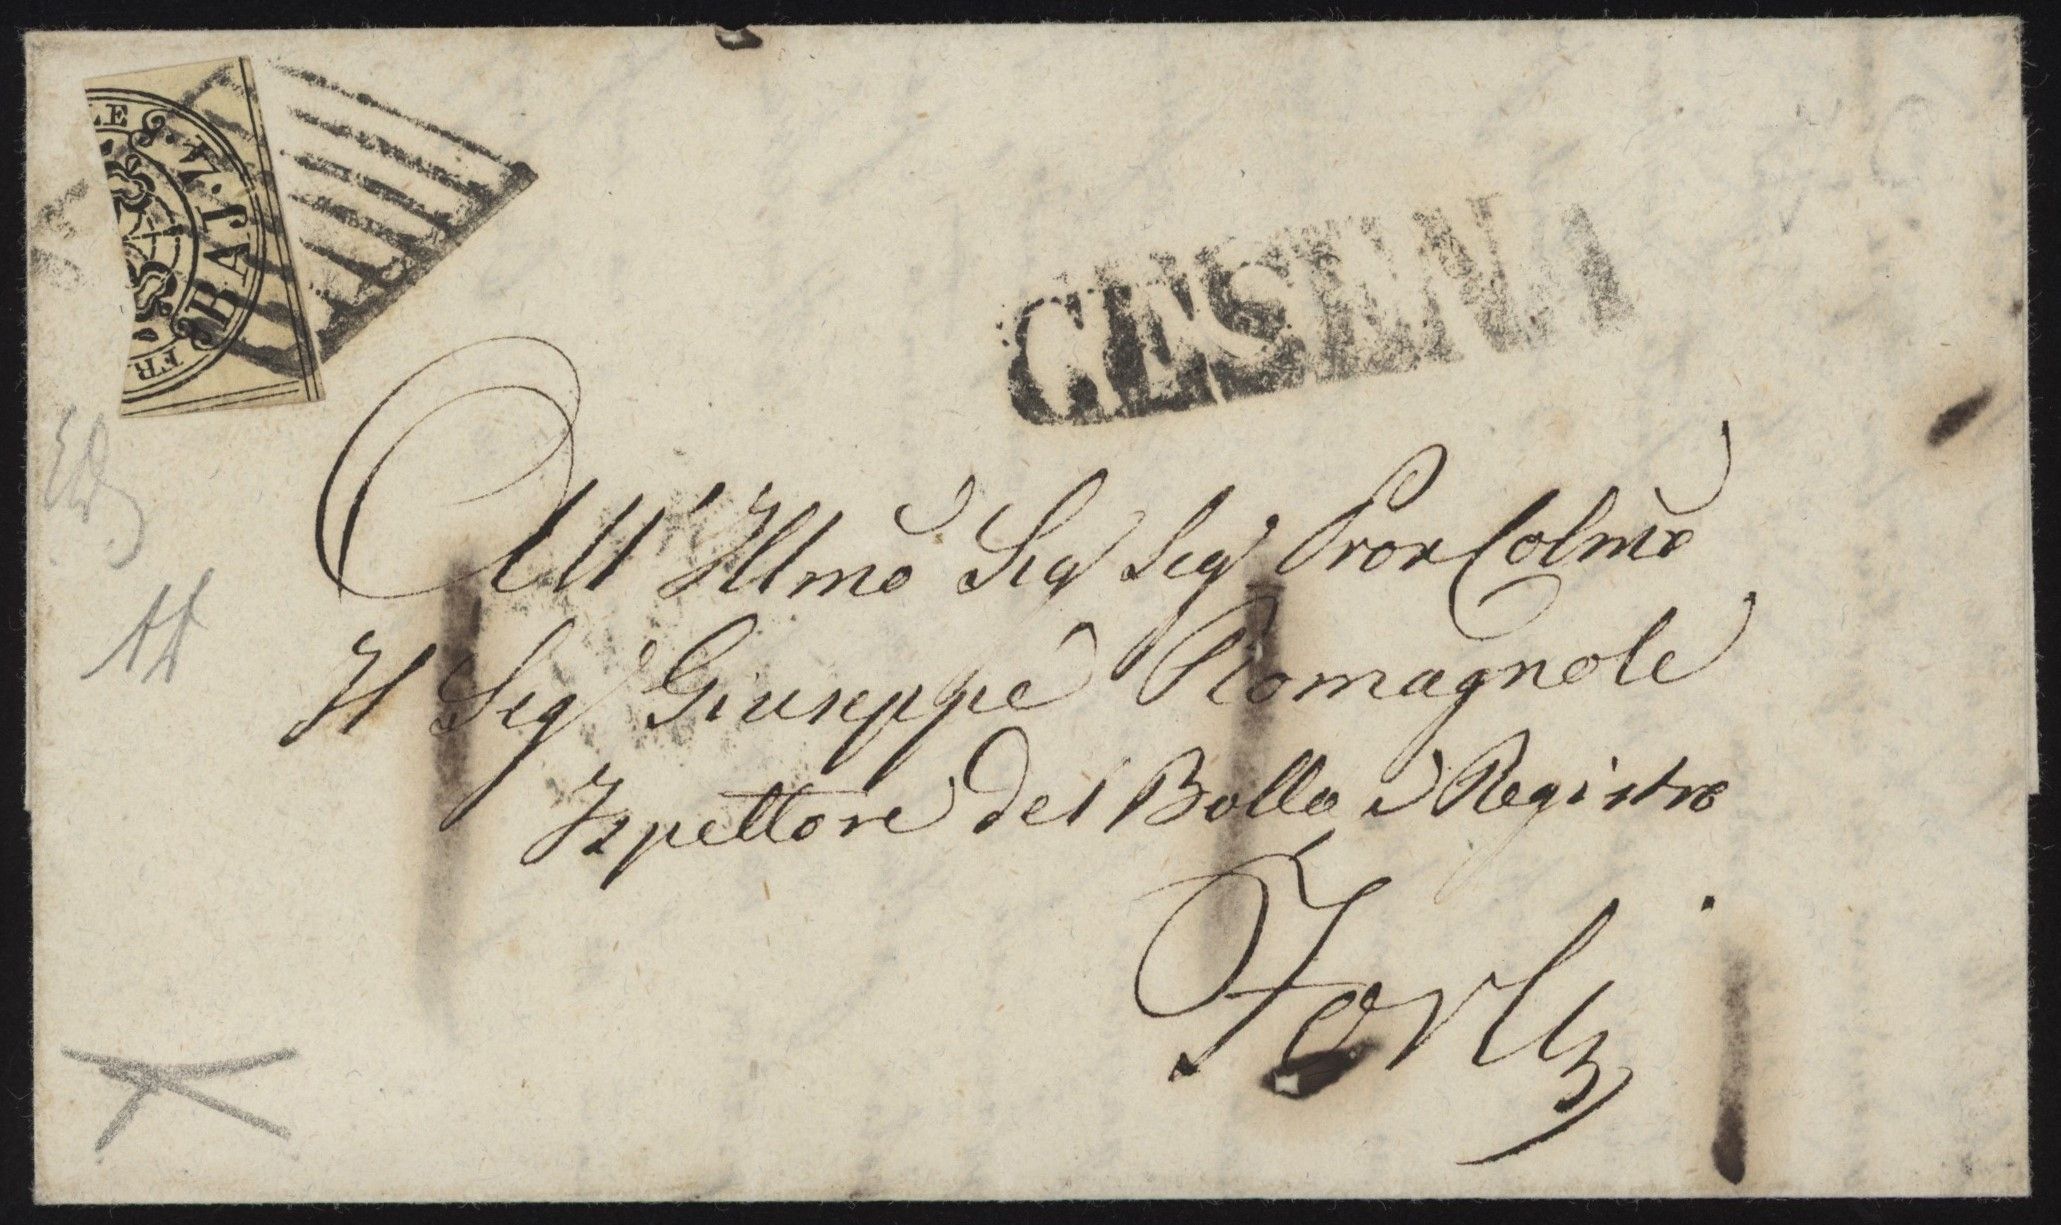 LE
BAJ. 7.
FR
CESENA
All' Illmo Sig Sig Pron Colmo
Il Sig Giuseppe Romagnole
Ispettore del Bollo e Registro
Forlì